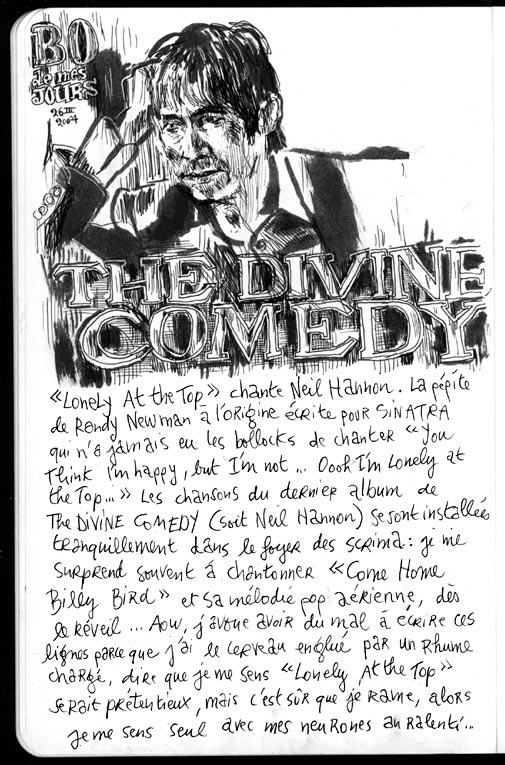 BO
de mes
JOURS
26 III
2004
THE DIVINE
COMEDY
« Lonely At the Top » chante Neil Hannon. La pépite
de Randy Newman à l'origine écrite pour SINATRA
qui n'a jamais eu les bollocks de chanter « You
Think I'm happy, but I'm not... Oooh I'm Lonely at
the Top... » Les chansons du dernier album de
The DIVINE COMEDY (soit Neil Hannon) se sont installées
tranquillement dans le foyer des scrima: je me
surprend souvent à chantonner « Come Home
Billy Bird » et sa mélodie pop aérienne, dès
le réveil... Aow, j'avoue avoir du mal à écrire ces
lignes parce que j'ai le cerveau englué par un rhume
chargé, dire que je me sens « Lonely At the Top »
serait prétentieux, mais c'est sûr que je rame, alors
je me sens seul avec mes neurones au ralenti...